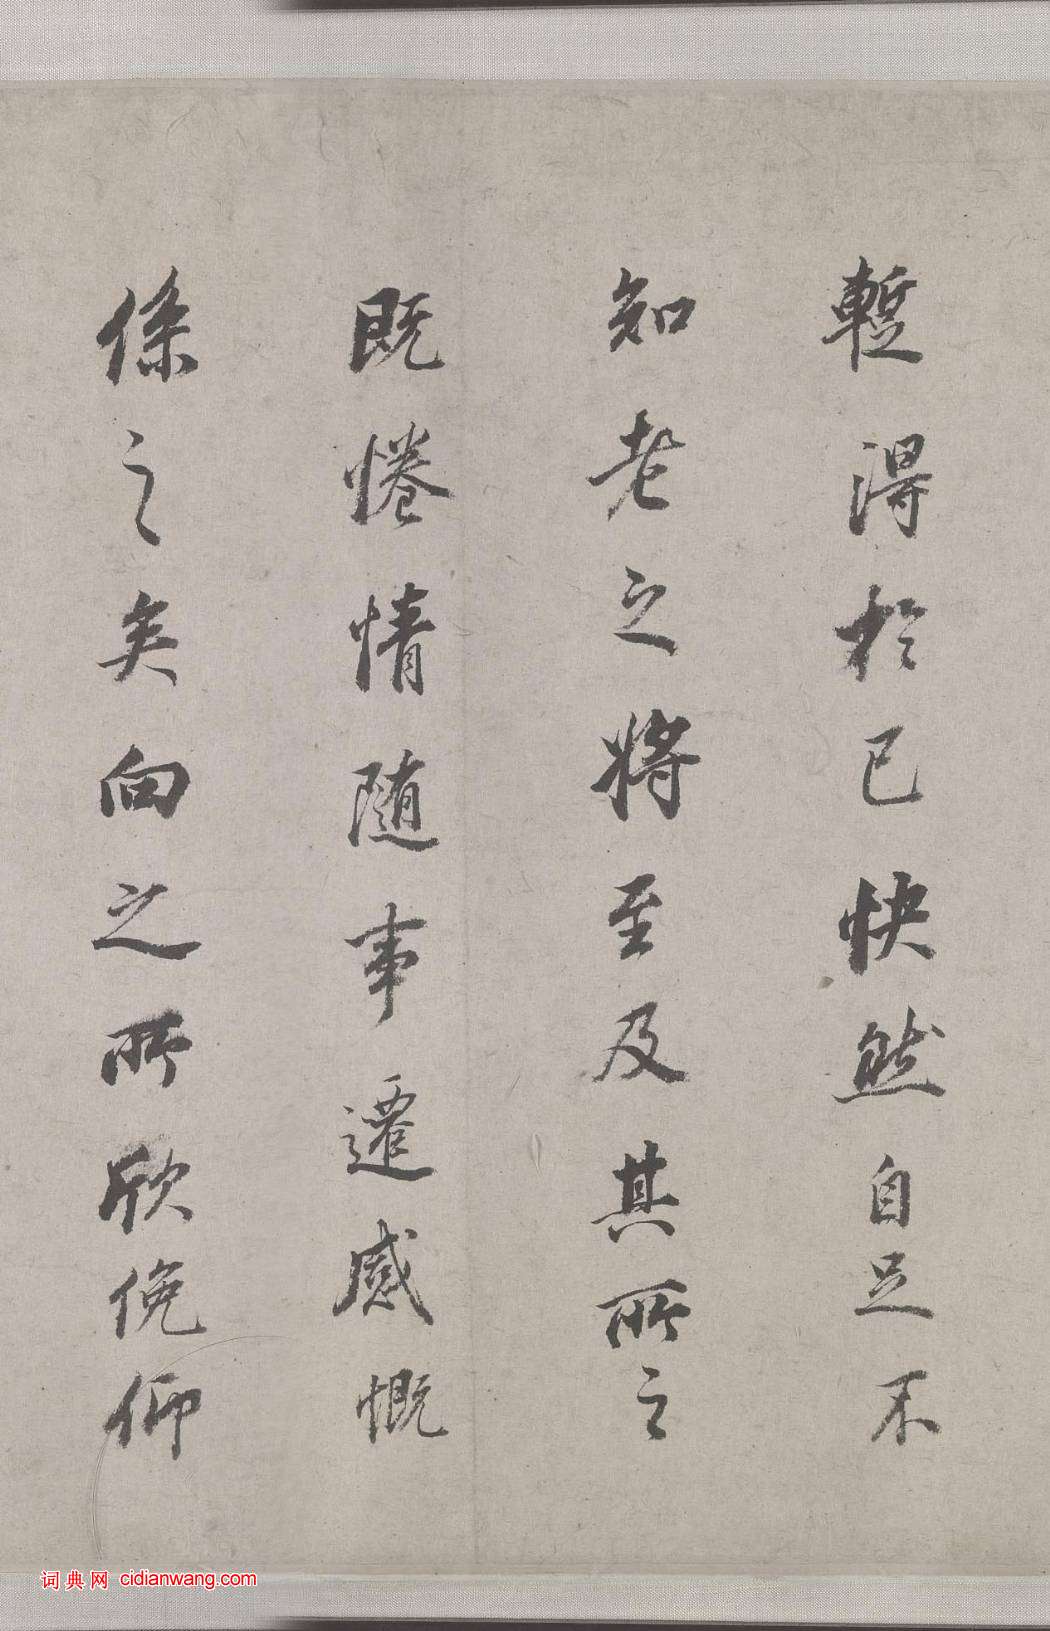 暫得於己快然自足不
知老之將至及其所之
既惓情隨事遷感慨
係之矣向之所欣俛仰
词典网 cidianwang.com